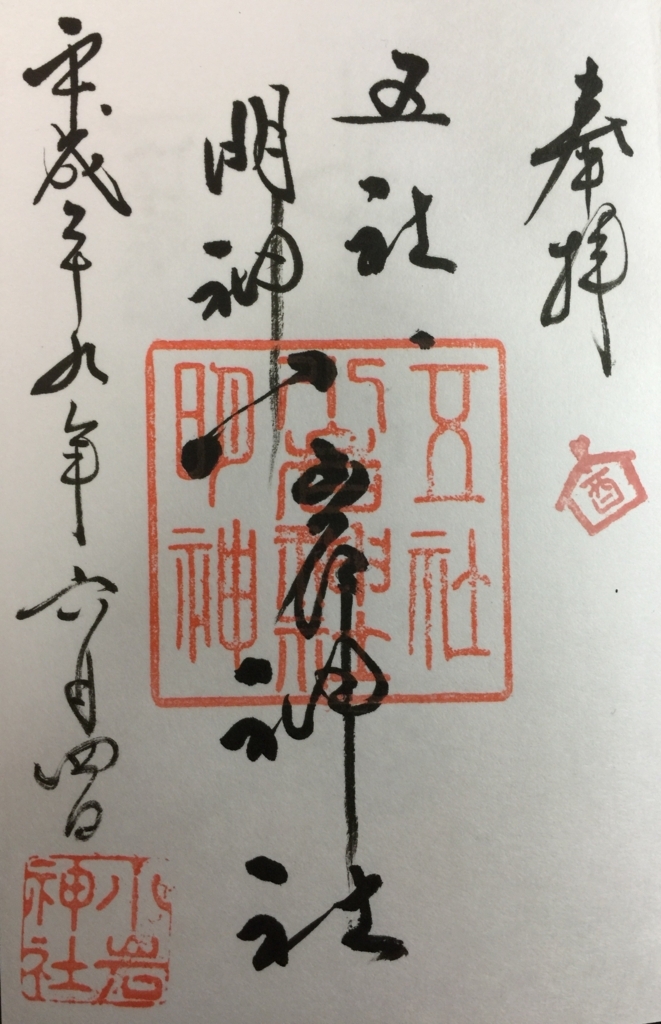 奉拝
酉
五社
明神
小岩神社
五社
小岩神社
明神
平成二十九年六月四日
小岩
神社